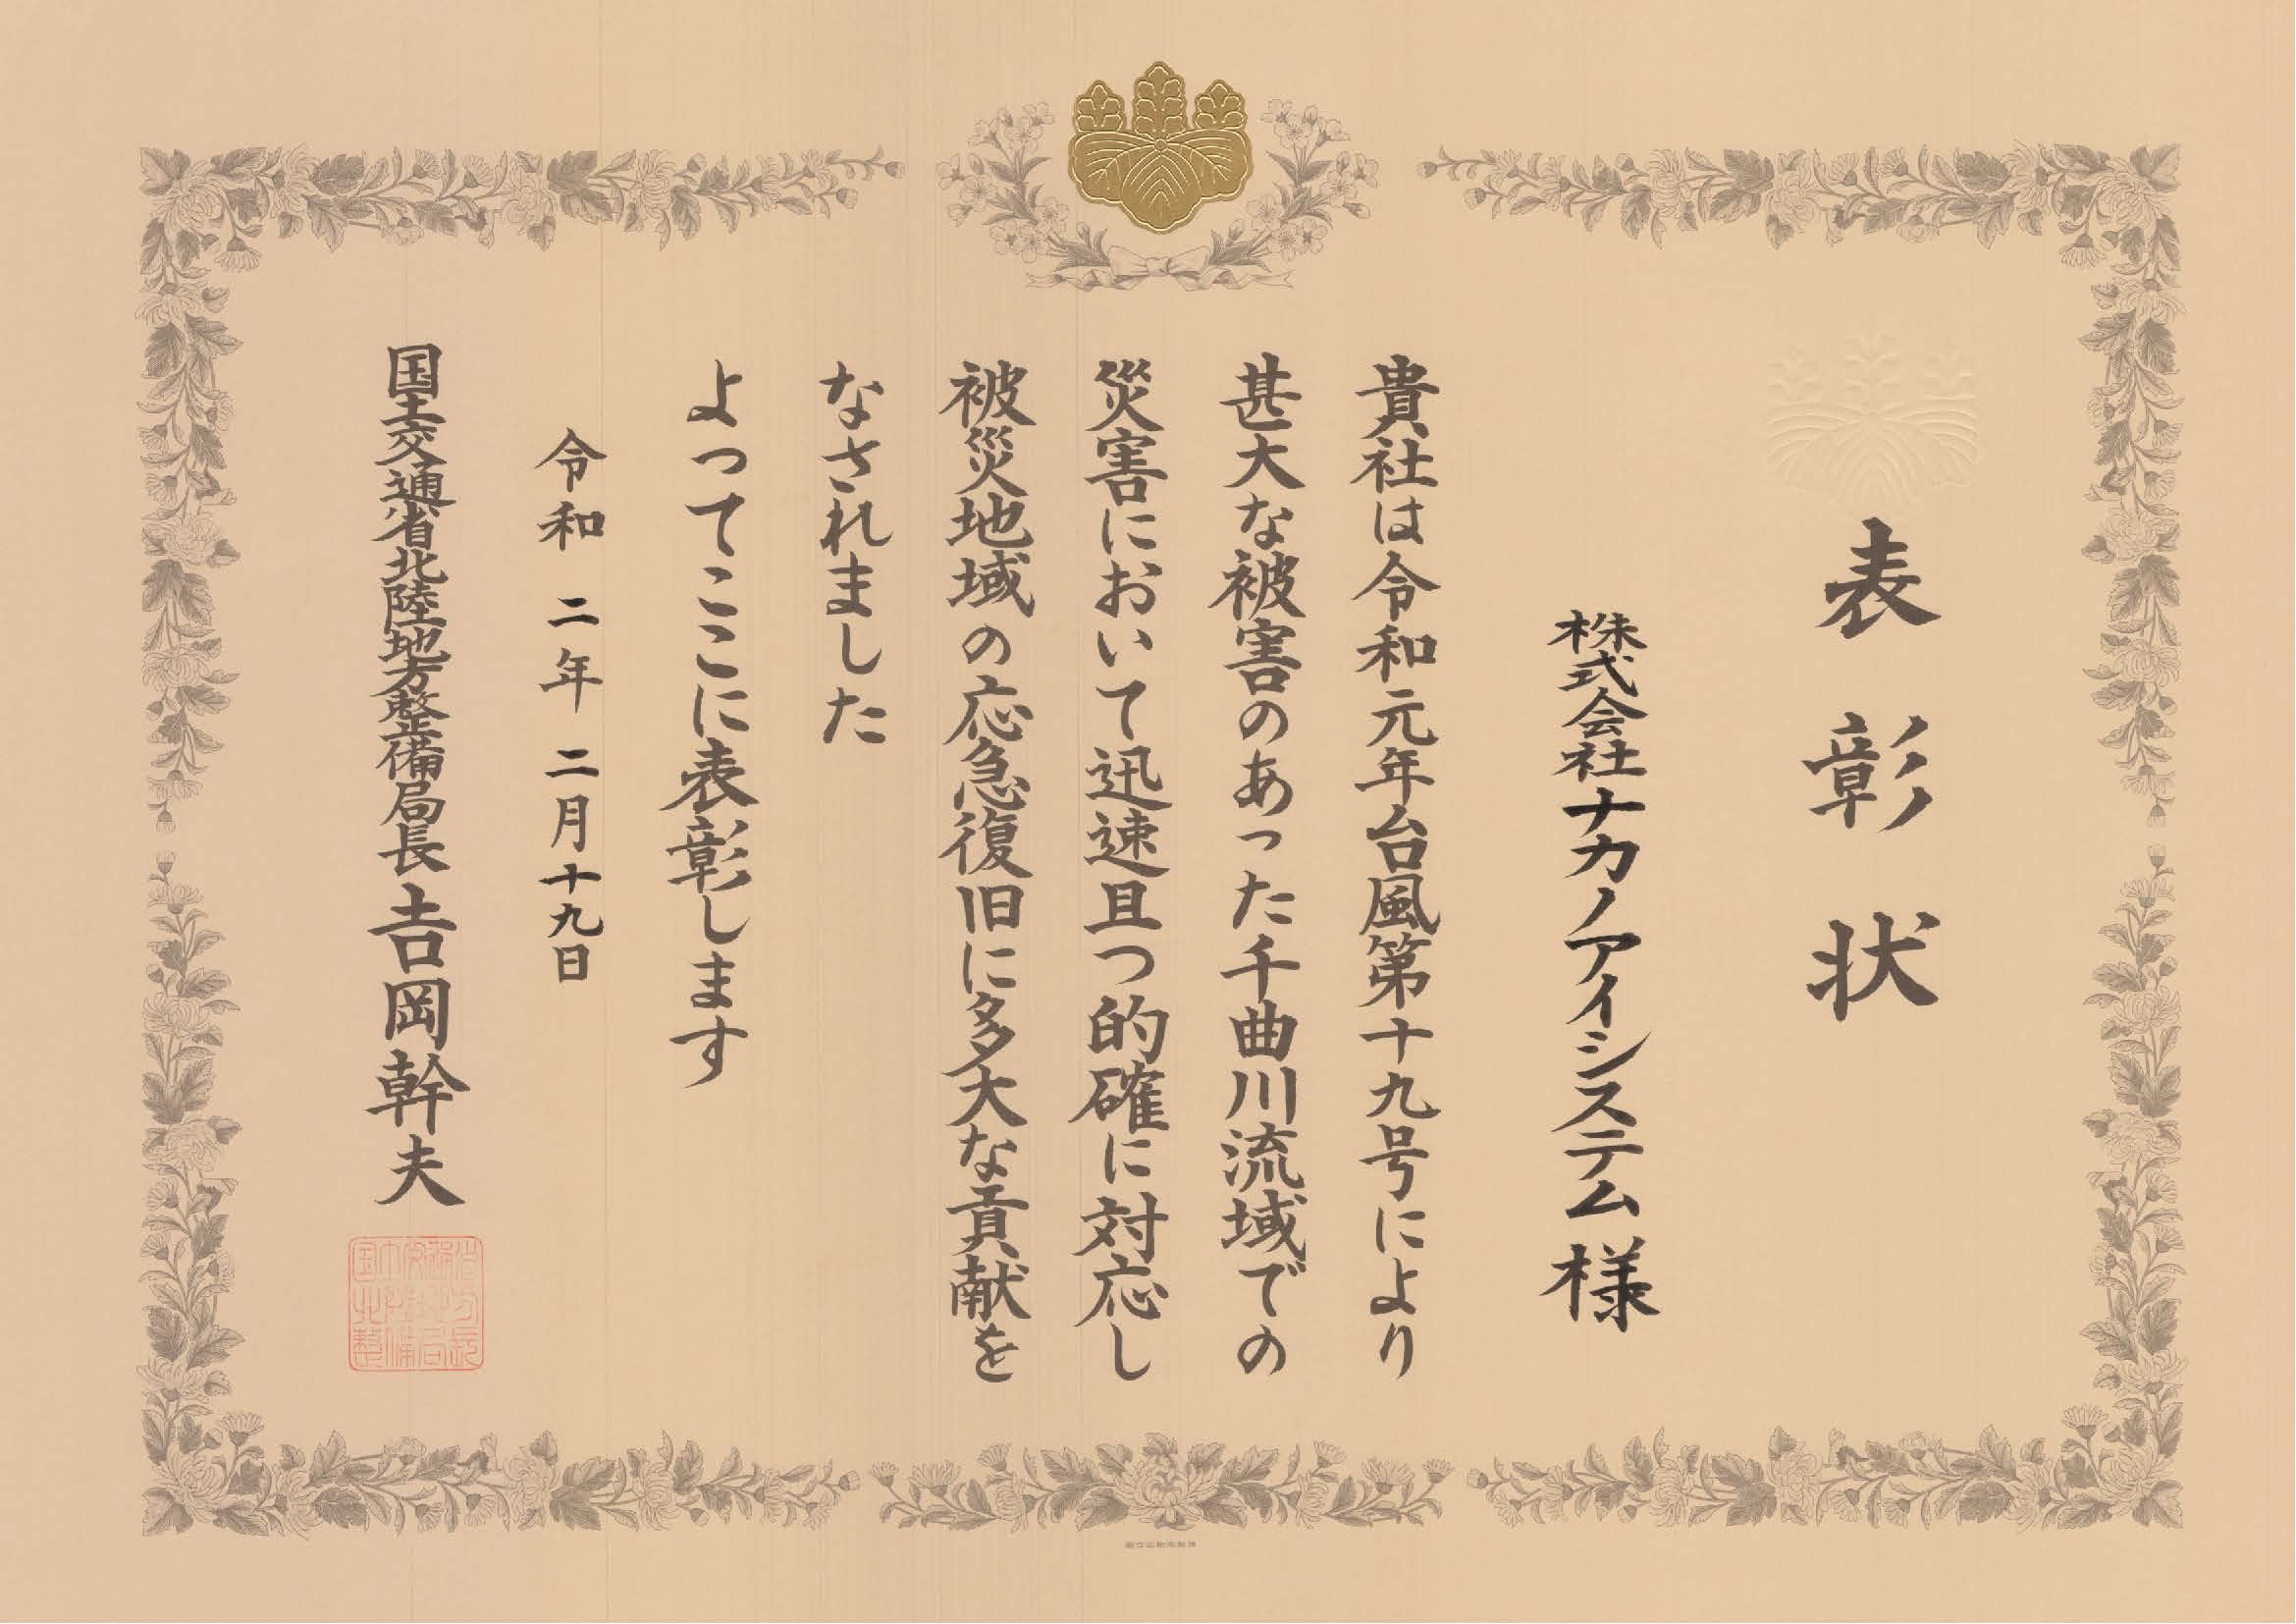 表彰状
株式会社ナカノアイシステム様
貴社は令和元年台風第十九号により
甚大な被害のあった千曲川流域での
災害において迅速且つ的確に対応し
被災地域の応急復旧に多大な貢献を
なされました
よってここに表彰します
令和二年二月十九日
国土交通省北陸地方整備局長吉岡幹夫